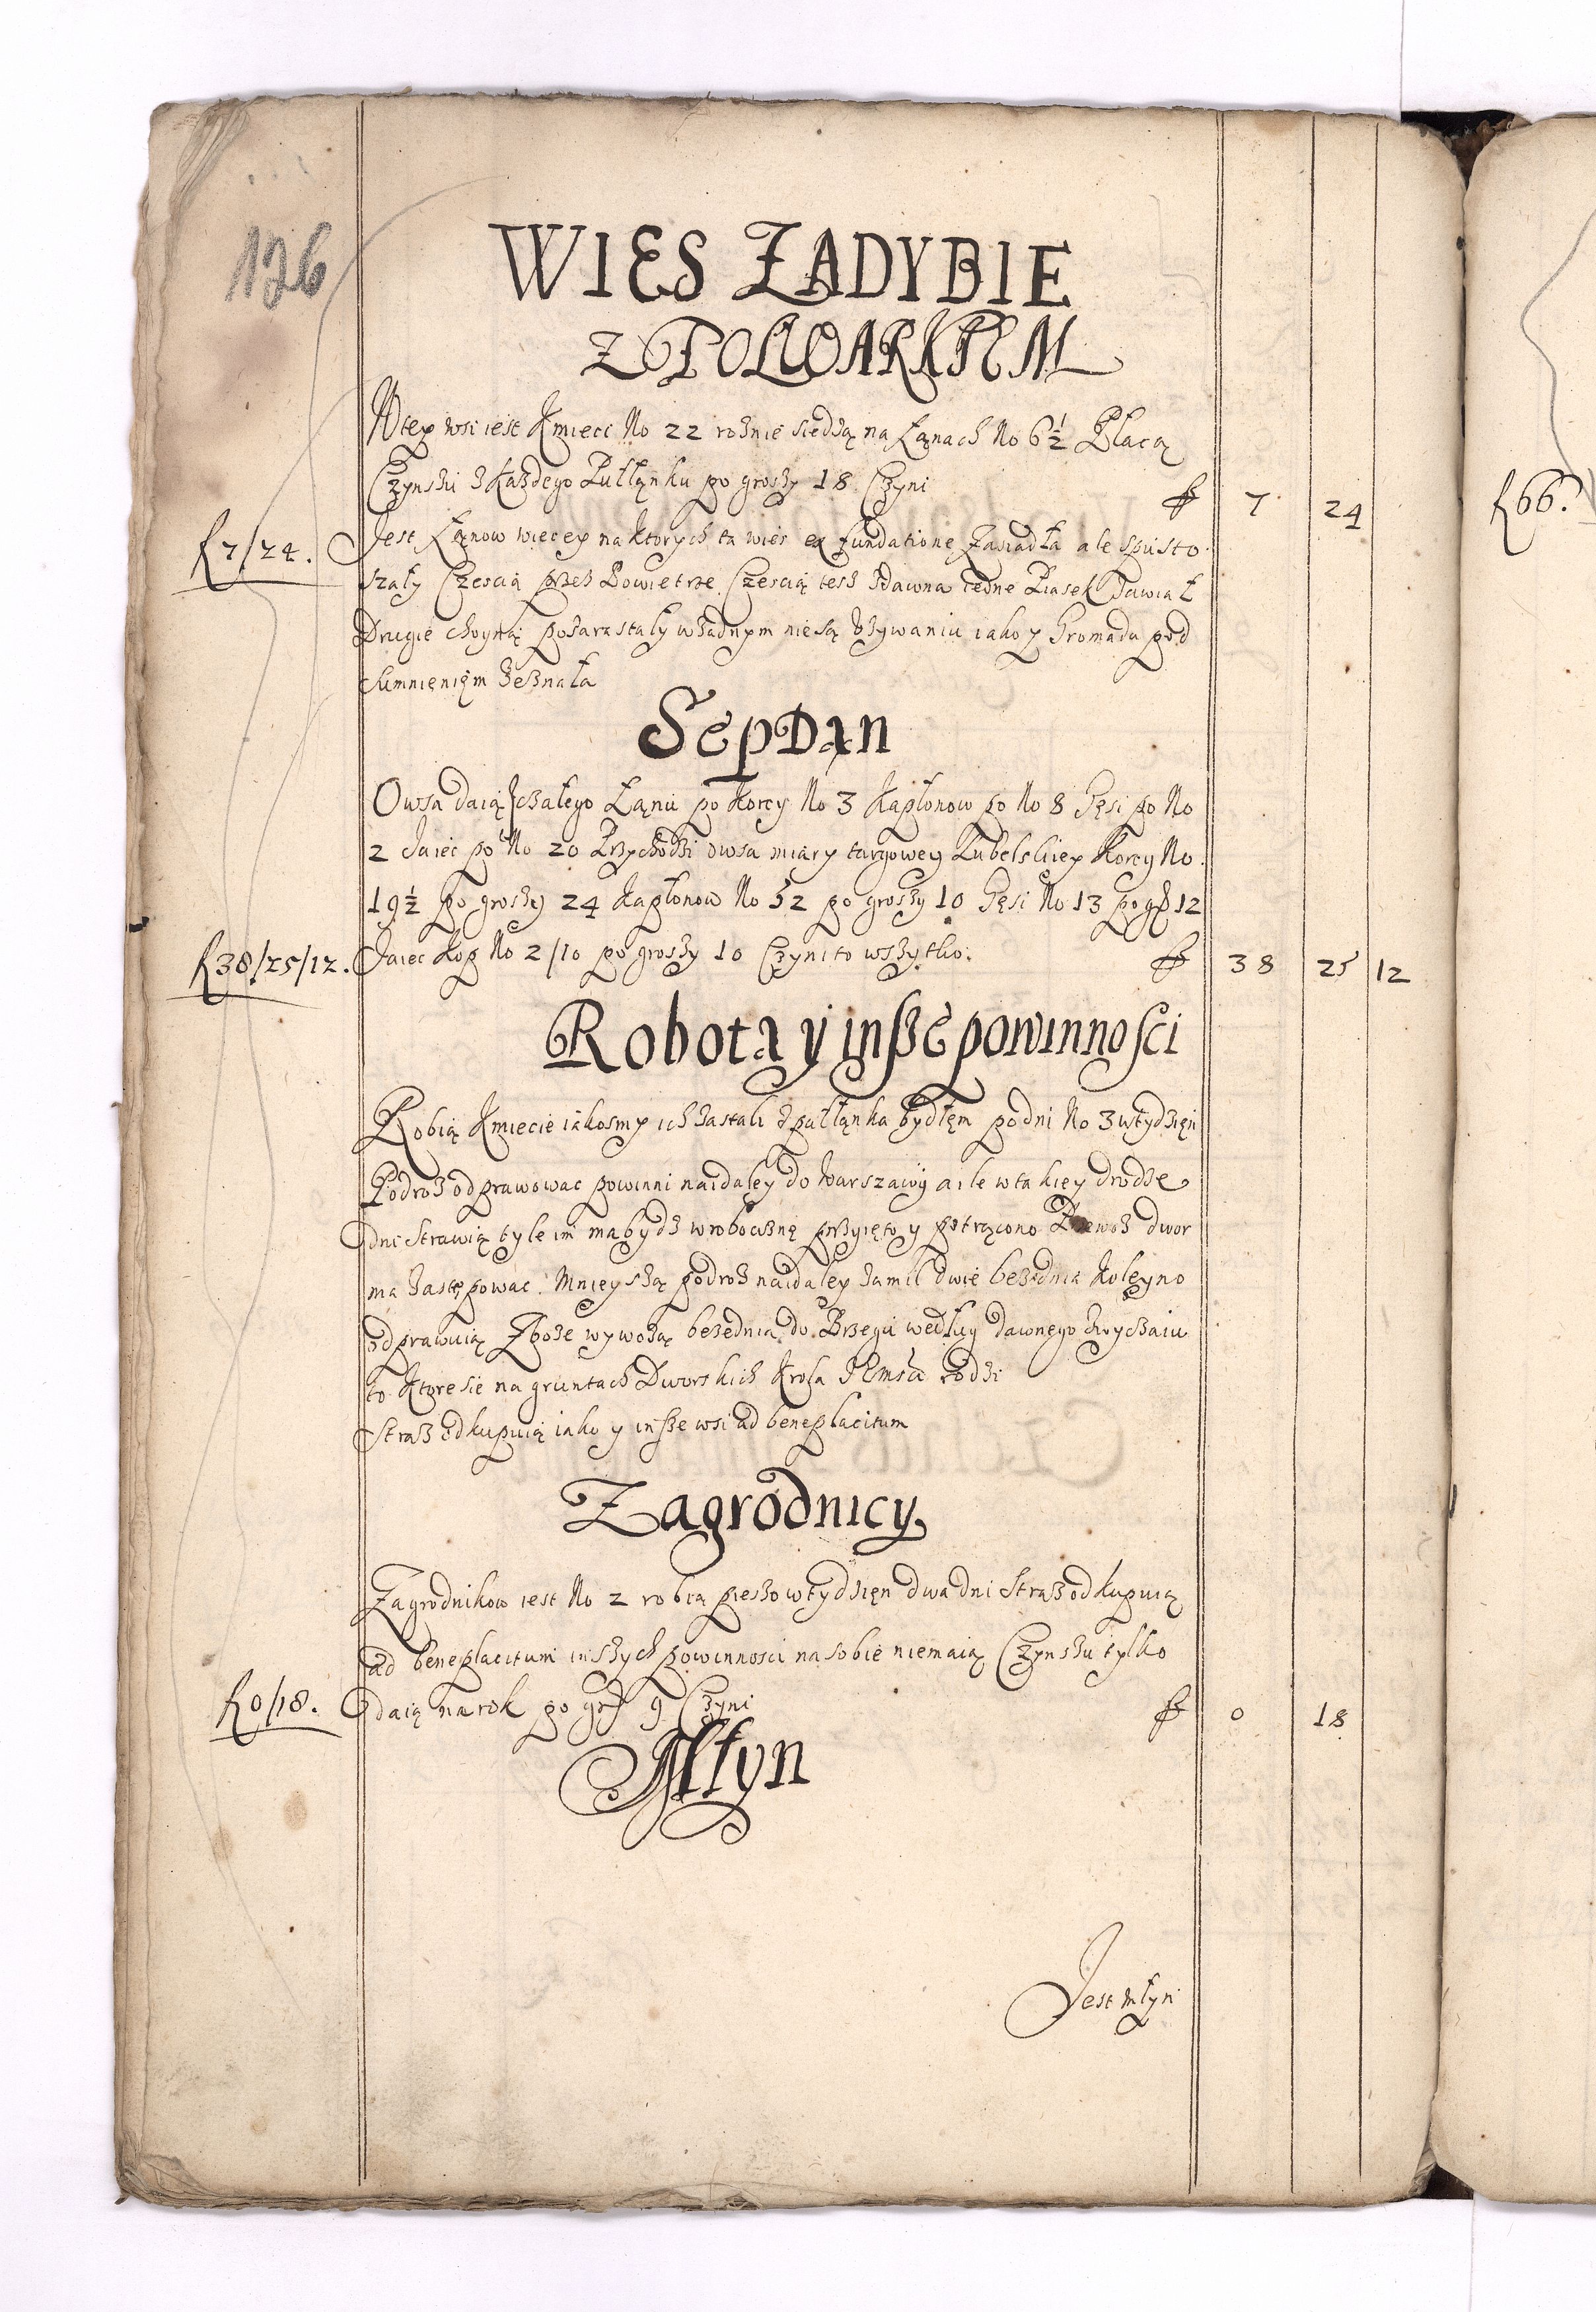 126
WIES ZADYBIE
Z FOLWARKIEM
W tey wsi iest Kmieci No 22 rożnie siedzą na Łąnach No 6½ Płacą
Czynszu z Każdego Pułłąnku po groszy 18 Czyni f 7 24
f 7/24.
Jest Łąnow wiecey na ktorych ta wieś ex fundatione Zasiadła ale spusto
szały Czescią przez Powietrze, Czescią tesz zdawna iedne Piasek zawiał
Drugie choyną pozarastały w żadnym nie są używaniu iako y Gromada pod
sumnienięm zeznała
SępDąn
Owsa daią z całego Łąnu po Korcy No 3 Kapłonow po No 8 Gęsi po No
2 Jaiec po No 20 Przychodzi owsa miary targowey Lubelskiey Korcy No
19½ po groszy 24 Kapłonow No 52 po groszy 10 Gęsi No 13 po gr 12
Jaiec Kop No 2/10 po groszy 10 Czyni to wszytko. f 38 25 12
f 38/25/12.
Robota y insze powinnosci
Robią Kmiecie iakosmy ich zastali z pułłąnka bydłęm po dni No 3 w tydzięń
Podroż odprawować powinni naidaley do Warszawy a ile w takiey drodze
dni strawią tyle im ma bydz w robociznę przyięto y potrącono Przewoz dwor
ma zastępować. Mnieyszą podroż naidaley za mil dwie bezednia Koleyno
odprawuią Zboże wywożą bezednia do Brzegu według dawnego zwyczaiu
to Ktore sie na gruntach Dworskich Krola JEmści rodzi
Straż odkupuią iako y insze wsi ad beneplacitum
Zagrodnicy
Zagrodnikow iest No 2 robią pieszo w tydzięń dwa dni Straż odkupuią
ad beneplacitum inszych powinnosci na sobie niemaią Czynszu tylko
daią na rok po gr 9 Czyni f 0 18
f 0/18.
Młyn
Jest młyn
f 66.